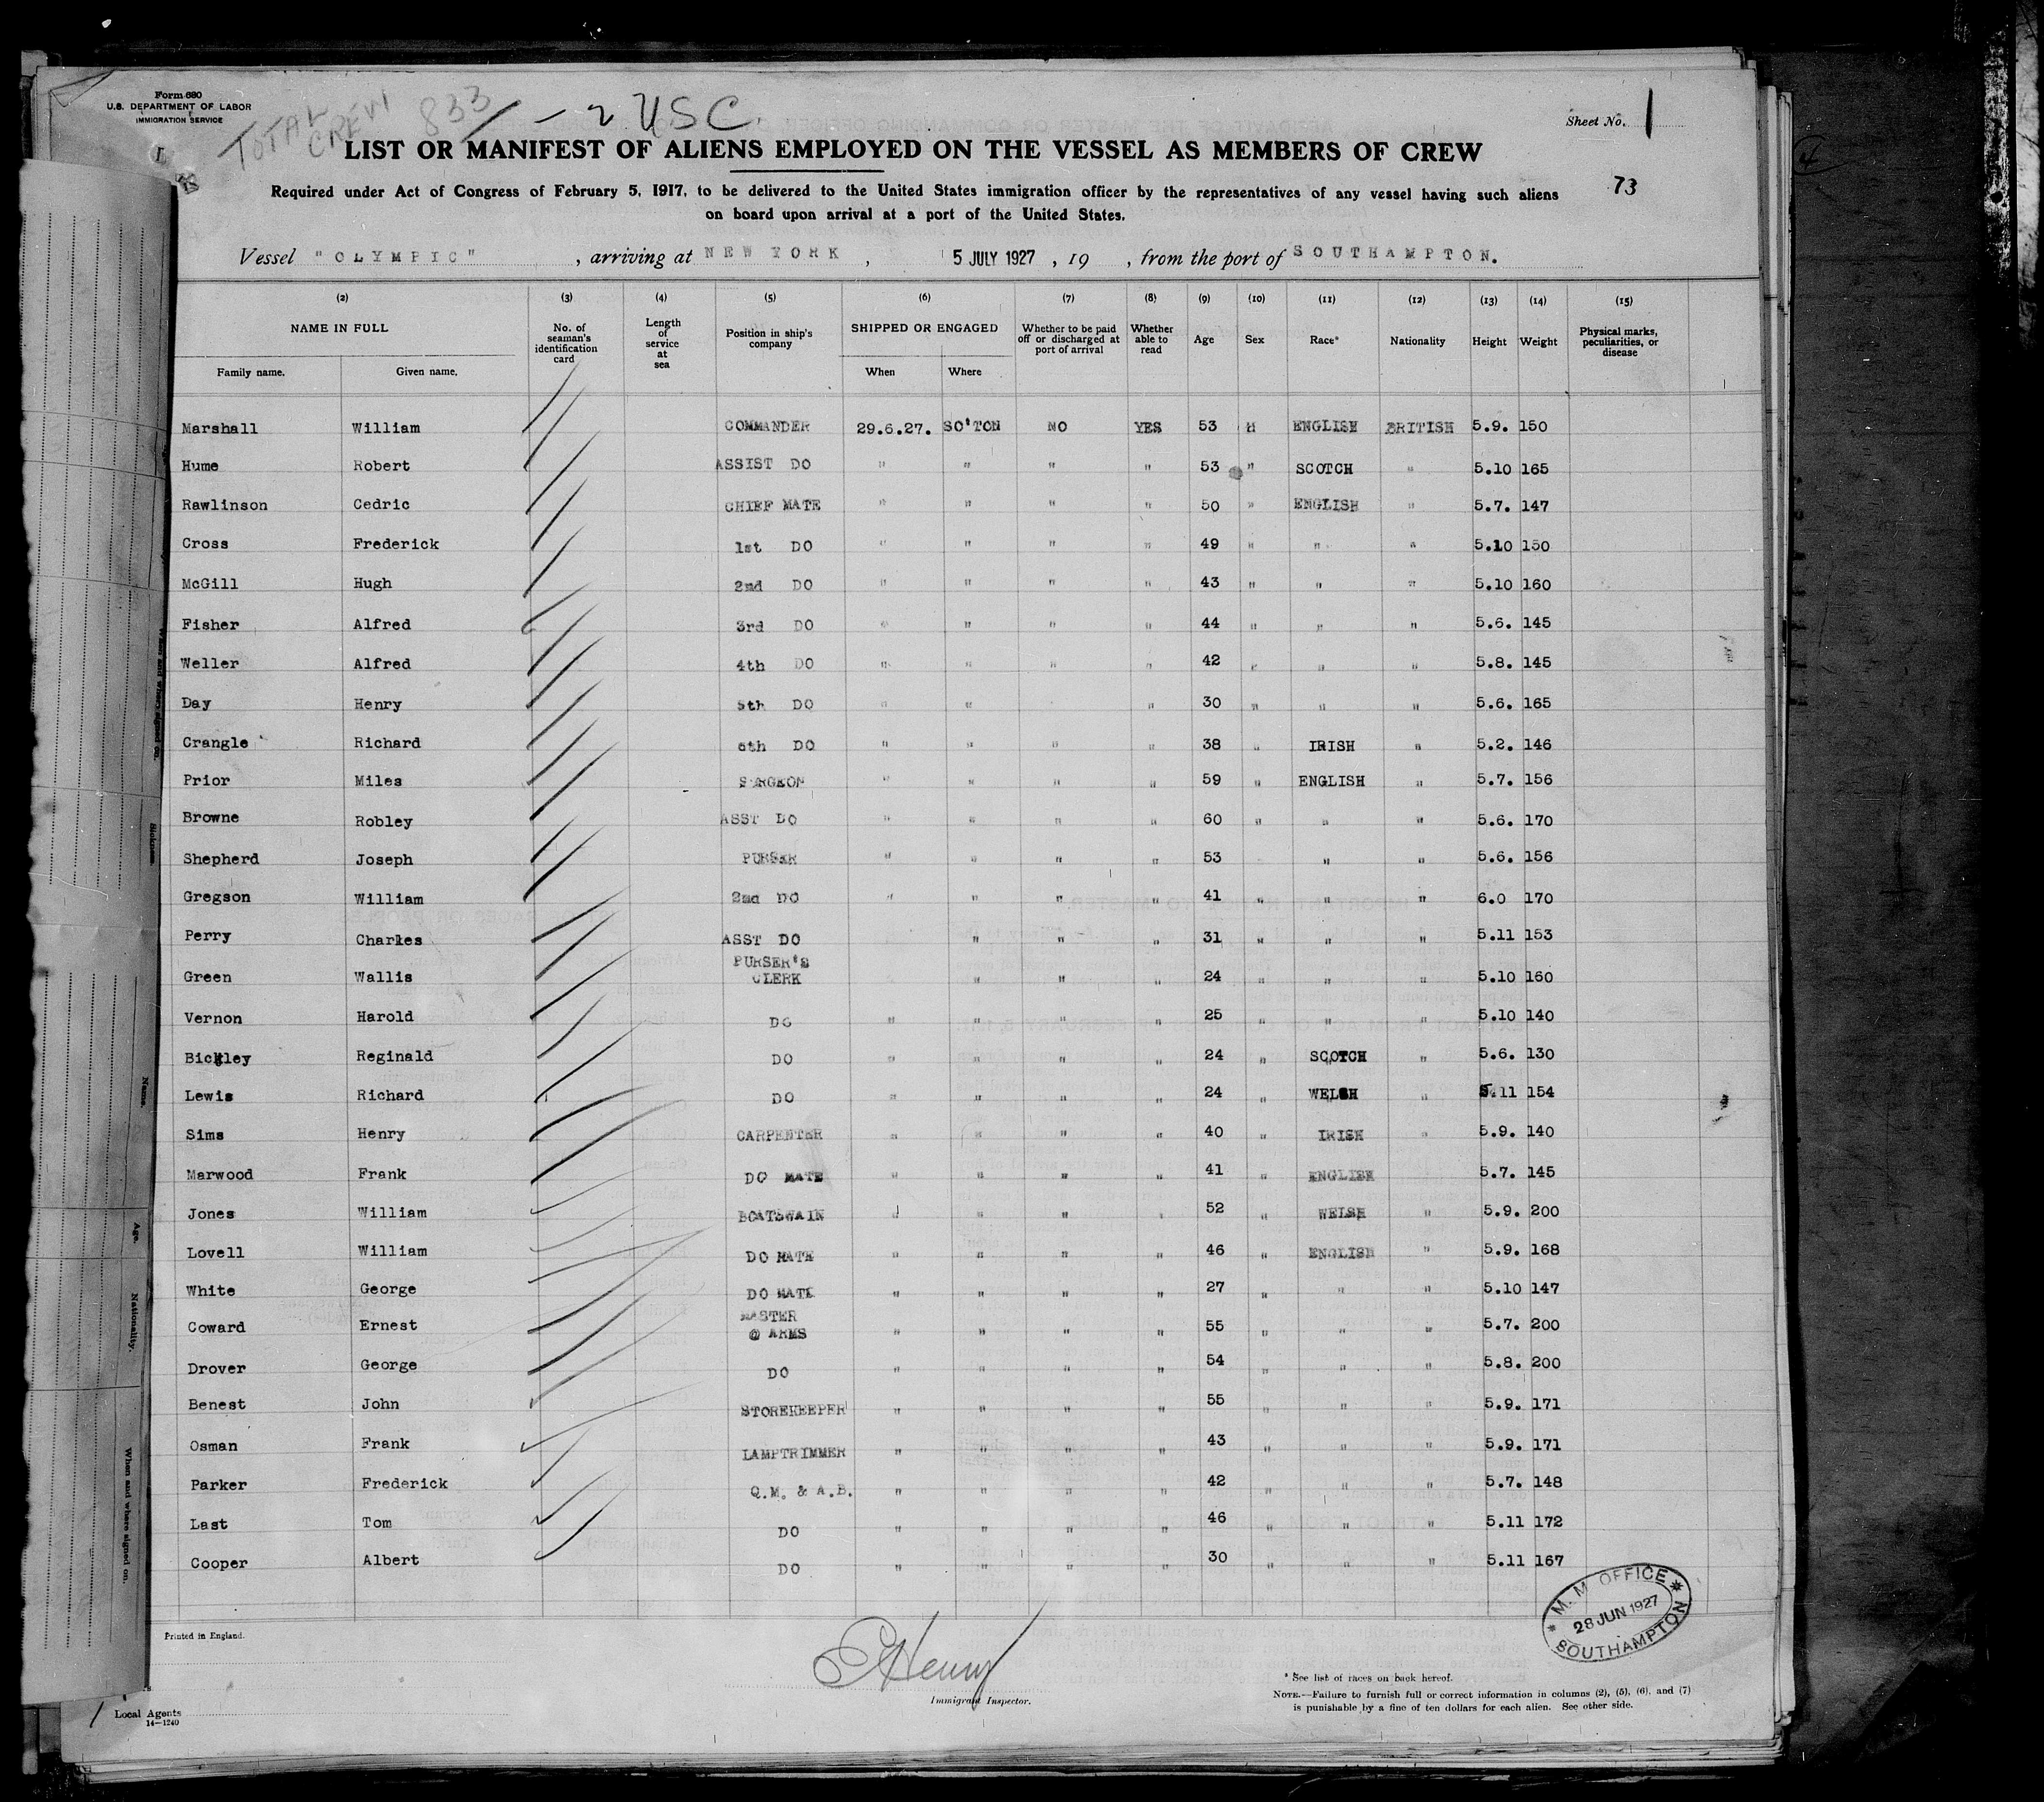 Form 680
U.S. DEPARTMENT OF LABOR
IMMIGRATION SERVICE
TOTAL CREW 833 — 2 USC.
Sheet No. 1
LIST OR MANIFEST OF ALIENS EMPLOYED ON THE VESSEL AS MEMBERS OF CREW
73
Required under Act of Congress of February 5, 1917, to be delivered to the United States immigration officer by the representatives of any vessel having such aliens
on board upon arrival at a port of the United States.
Vessel "OLYMPIC" , arriving at NEW YORK , 5 JULY 1927 , 19 , from the port of SOUTHAMPTON.
(2) (3) (4) (5) (6) (7) (8) (9) (10) (11) (12) (13) (14) (15)
NAME IN FULL No. of seaman's identification card Length of service at sea Position in ship's company SHIPPED OR ENGAGED Whether to be paid off or discharged at port of arrival Whether able to read Age Sex Race* Nationality Height Weight Physical marks, peculiarities, or disease
Family name. Given name. When Where
Marshall William COMMANDER 29.6.27. SO'TON NO YES 53 M ENGLISH BRITISH 5.9. 150
Hume Robert ASSIST DO " " " " 53 " SCOTCH " 5.10 165
Rawlinson Cedric CHIEF MATE " " " " 50 " ENGLISH " 5.7. 147
Cross Frederick 1st DO " " " " 49 " " " 5.10 150
McGill Hugh 2nd DO " " " " 43 " " " 5.10 160
Fisher Alfred 3rd DO " " " " 44 " " " 5.6. 145
Weller Alfred 4th DO " " " " 42 " " " 5.8. 145
Day Henry 5th DO " " " 30 " " " 5.6. 165
Crangle Richard 6th DO " " " " 38 " IRISH " 5.2. 146
Prior Miles SURGEON " " " " 59 " ENGLISH " 5.7. 156
Browne Robley ASST DO " " " " 60 " " " 5.6. 170
Shepherd Joseph PURSER " " " " 53 " " 5.6. 156
Gregson William 2nd DO " " " " 41 " " " 6.0 170
Perry Charles ASST DO " " " 31 " " " 5.11 153
Green Wallis PURSER'S CLERK " " " 24 " " " 5.10 160
Vernon Harold DO " " " " 25 " " " 5.10 140
Bickley Reginald DO " " " " 24 " SCOTCH " 5.6. 130
Lewis Richard DO " " " " 24 " WELSH " 5.11 154
Sims Henry CARPENTER " " " " 40 " IRISH " 5.9. 140
Marwood Frank DO MATE " " " " 41 " ENGLISH 5.7. 145
Jones William BOATSWAIN " " " " 52 " WELSH " 5.9. 200
Lovell William DO MATE " " " " 46 " ENGLISH " 5.9. 168
White George DO MATE " " " " 27 " " " 5.10 147
Coward Ernest MASTER @ ARMS " " " " 55 " " " 5.7. 200
Drover George DO " " " " 54 " " " 5.8. 200
Benest John STOREKEEPER " " " " 55 " " " 5.9. 171
Osman Frank LAMPTRIMMER " " " " 43 " " " 5.9. 171
Parker Frederick Q.M. & A.B. " " " " 42 " " " 5.7. 148
Last Tom DO " " " " 46 " " " 5.11 172
Cooper Albert DO " " " " 30 " " " 5.11 167
M. M. OFFICE
28 JUN 1927
SOUTHAMPTON
Printed in England.
Henry
Immigrant Inspector.
* See list of races on back hereof.
NOTE.—Failure to furnish full or correct information in columns (2), (5), (6), and (7)
is punishable by a fine of ten dollars for each alien. See other side.
Local Agents
14—1240
When and where signed on.
Name.
Age.
Nationality.
When and where signed on.